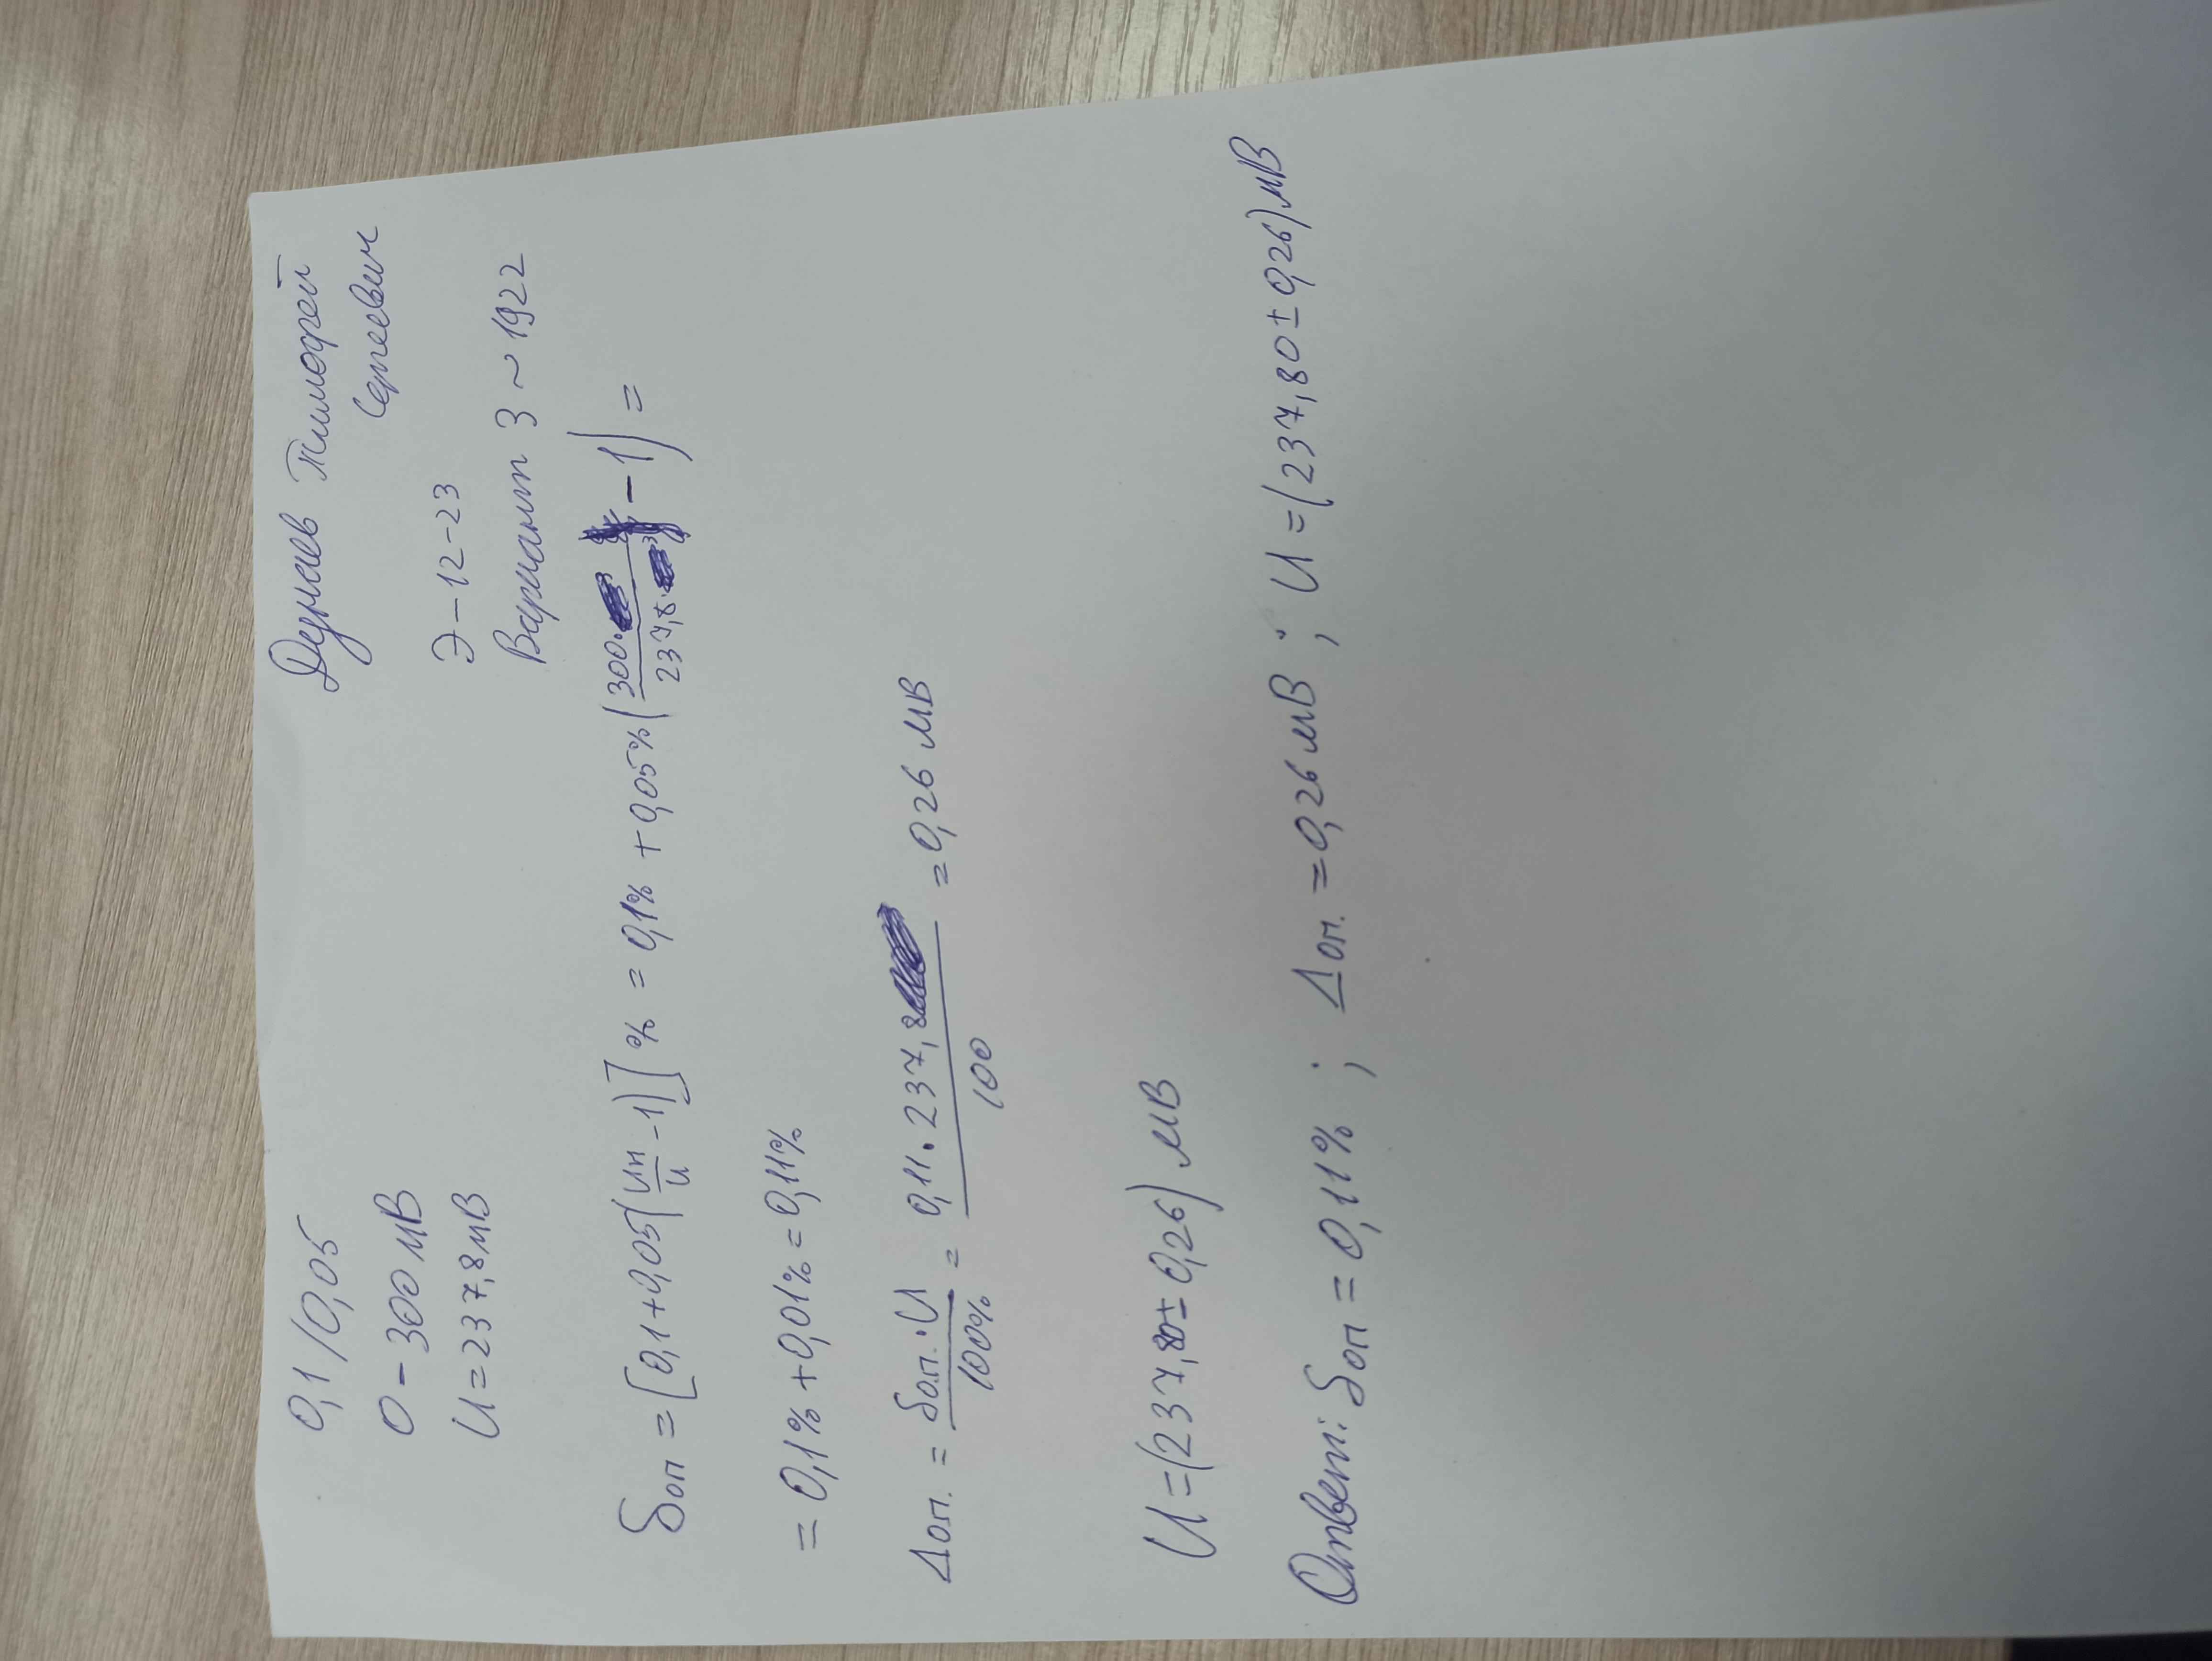 Дунаев Тимофей
Сергеевич
Э-12-23
Вариант 3 ~ 1922
0,1/0,05
0-300 мВ
U=237,8мВ
δоп = [0,1+0,05(Uн/U -1)] % = 0,1% + 0,05%(300·/237,8· -1) =
= 0,1% + 0,01% = 0,11%
Δоп. = δоп.·U/100% = 0,11·237,8/100 = 0,26 мВ
U=(237,80±0,26) мВ
Ответ: δоп = 0,11% ; Δоп. =0,26мВ ; U=(237,80±0,26)мВ